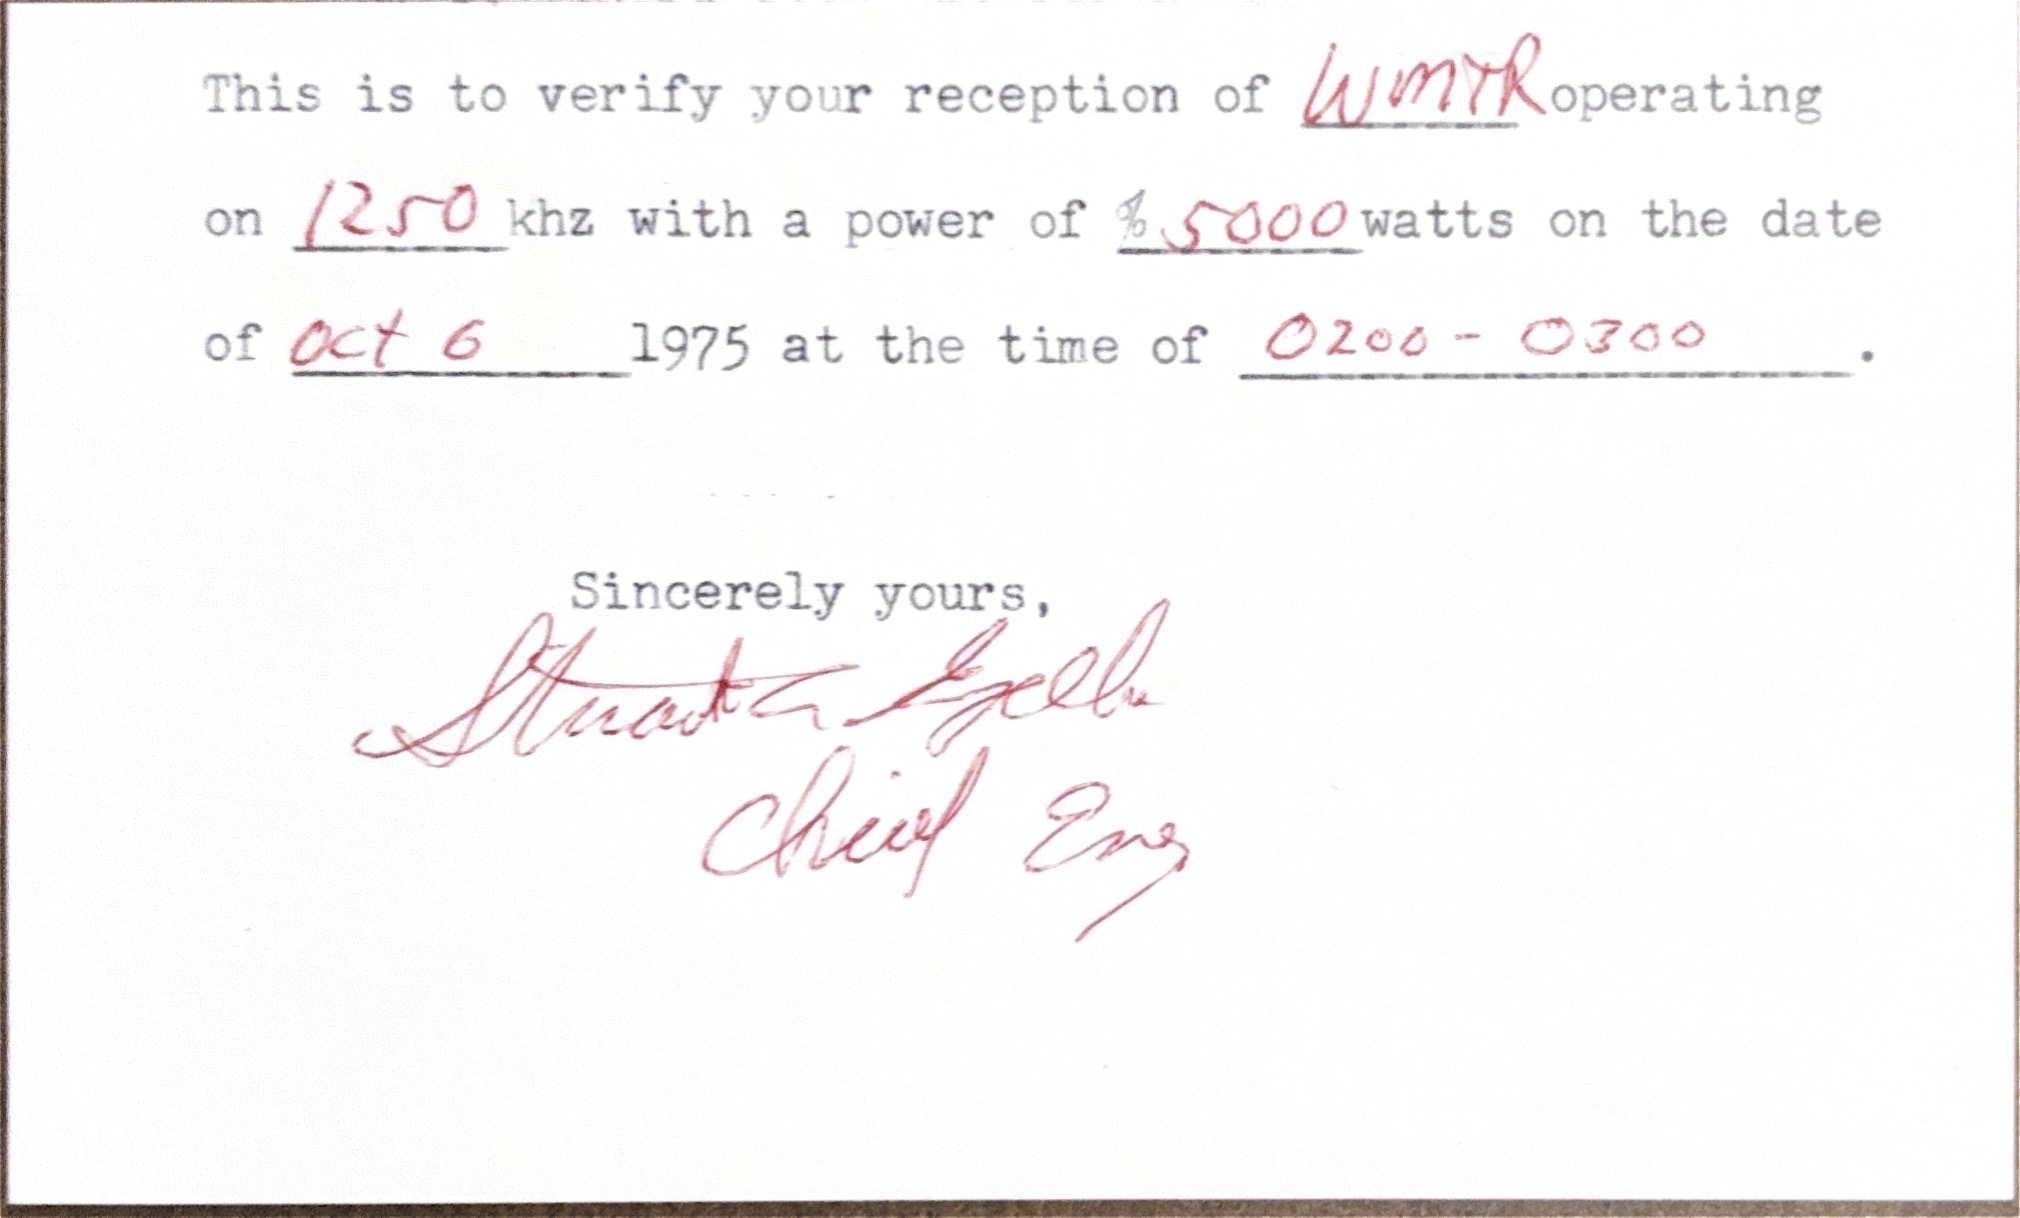 This is to verify your reception of WMTR operating
on 1250 khz with a power of 5000 watts on the date
of Oct 6 1975 at the time of 0200 - 0300 .
Sincerely yours,
Stuart
Chief Eng